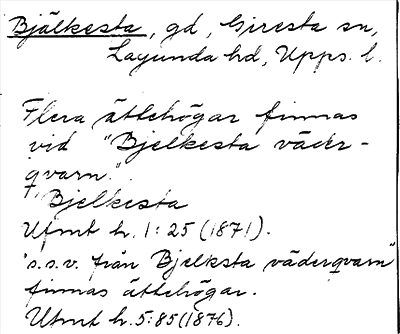 Bjälkesta, gd, Giresta sn,
Lagunda hd, Upps. l.
Flera ättehögar finnas
vid "Bjelkesta väder-
qvarn."
Bjelkesta
Ufmt h. 1: 25 (1871).
"s.s.v. från Bjelksta väderqvarn"
finnas ättehögar.
Ufmt h. 5: 85 (1876).